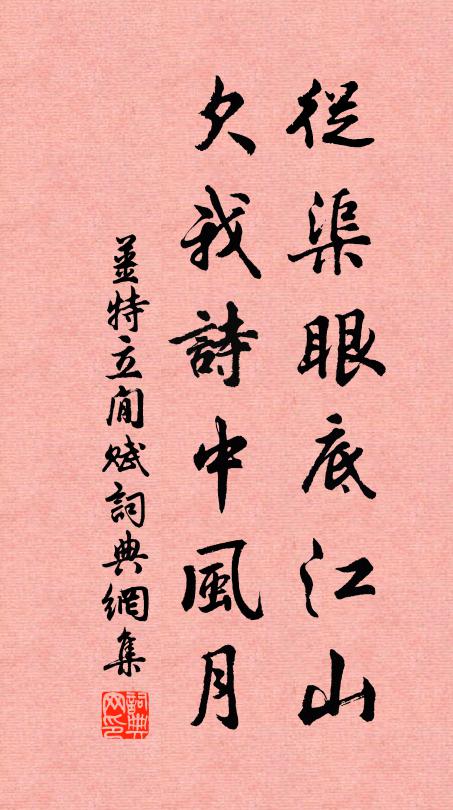 從渠眼底江山
欠我詩中風月
姜特立閒賦詞典網集
詞典网印